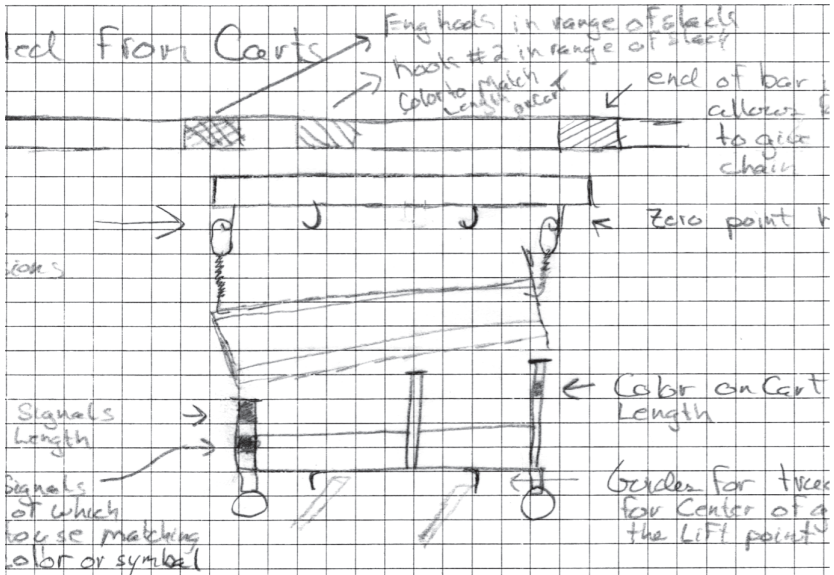 ted from Carts
Eng hads in range of slacks
hook #2 in range of slack
Color to Match
Length on Car
end of bar i
allows
to give
chain
Zero point h
ions
Color on Cart
Length
Signals
Length
Signals
of which
to use matching
color or symbol
Guides for
for Center of g
the Lift point